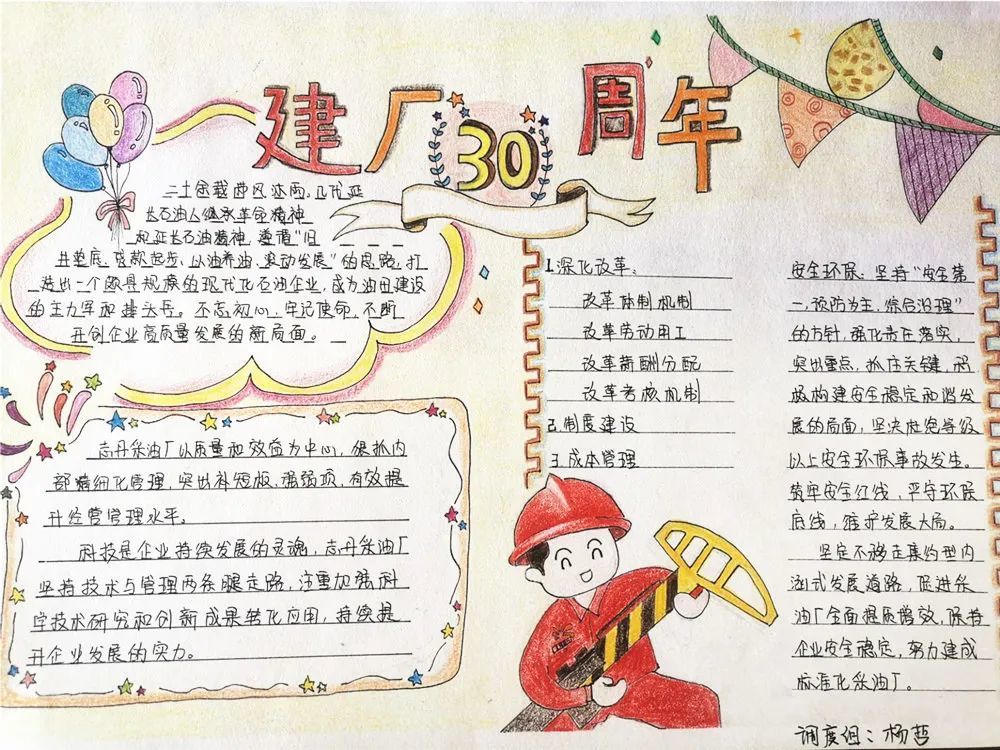 建厂30周年
二十余载栉风沐雨，几代延
长石油人继承革命精神
和延长石油精神，遵循"旧
井垫底、贷款起步、以油养油、滚动发展"的思路，打
造出一个颇具规模的现代化石油企业，成为油田建设
的主力军和排头兵。不忘初心，牢记使命，不断
开创企业高质量发展的新局面。
志丹采油厂以质量和效益为中心，狠抓内
部精细化管理，突出补短板、强弱项，有效提
升经营管理水平。
科技是企业持续发展的灵魂，志丹采油厂
坚持技术与管理两条腿走路，注重加强科
学技术研究和创新成果转化应用，持续提
升企业发展的实力。
1.深化改革：
改革体制机制
改革劳动用工
改革薪酬分配
改革考核机制
2.制度建设
3.成本管理
安全环保：坚持"安全第
一，预防为主，综合治理"
的方针，强化责任落实，
突出重点，抓住关键，积
极构建安全稳定和谐发
展的局面，坚决杜绝等级
以上安全环保事故发生。
筑牢安全红线，严守环保
底线，维护发展大局。
坚定不移走集约型内
涵式发展道路，促进采
油厂全面提质增效，保持
企业安全稳定，努力建成
标准化采油厂。
调度组：杨哲